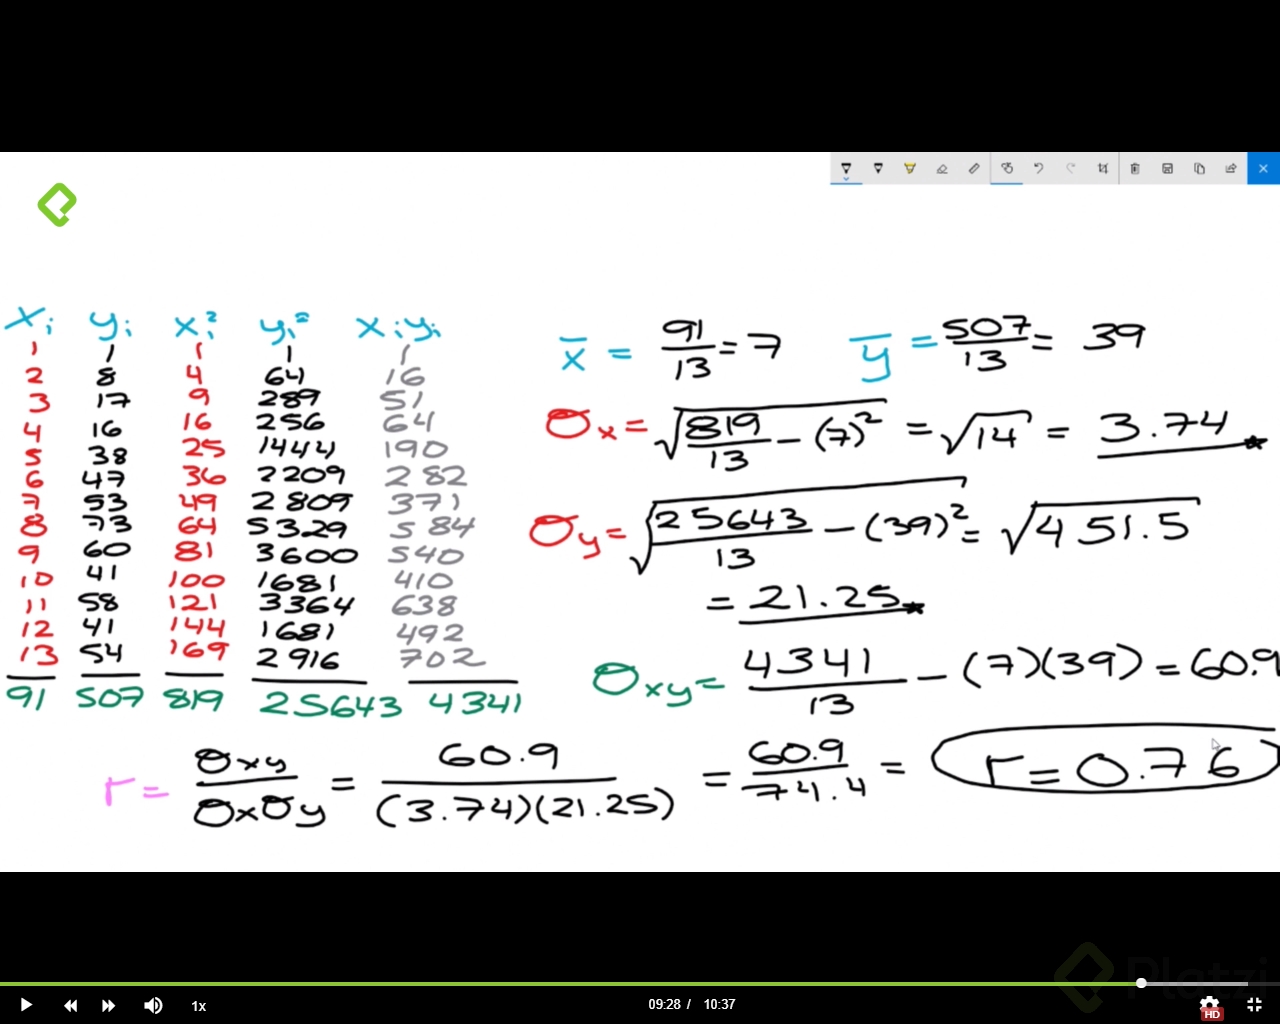 xᵢ yᵢ xᵢ² yᵢ² xᵢyᵢ
1 1 1 1 1
2 8 4 64 16
3 17 9 289 51
4 16 16 256 64
5 38 25 1444 190
6 47 36 2209 282
7 53 49 2809 371
8 73 64 5329 584
9 60 81 3600 540
10 41 100 1681 410
11 58 121 3364 638
12 41 144 1681 492
13 54 169 2916 702
91 507 819 25643 4341
x̄ = 91/13 = 7 ȳ = 507/13 = 39
σx = √(819/13 - (7)²) = √14 = 3.74
σy = √(25643/13 - (39)²) = √451.5
= 21.25
σxy = 4341/13 - (7)(39) = 60.9
r = σxy/σxσy = 60.9/(3.74)(21.25) = 60.9/74.4 = r = 0.76
Platzi
1x 09:28 / 10:37 HD